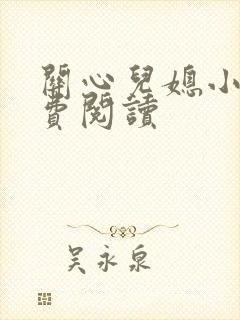 關心兒媳小
費閱讀
吳永泉